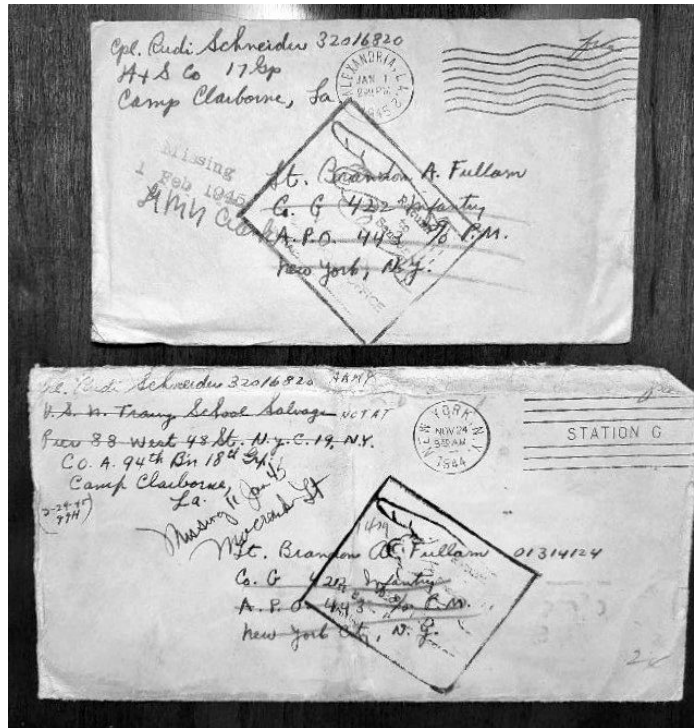 Cpl. Rudi Schneider 32016820
H & S Co 17 Gp
Camp Claiborne, La.
Free
ALEXANDRIA, LA. 2
JAN 1
1945
Missing
1 Feb 1945
Lt. Brandon A. Fullam
Co. G 422 Infantry
A.P.O. 443 c/o P.M.
New York, N.Y.
OFFICE
Cpl. Rudi Schneider 32016820 ARMY
U.S.N. Trang School Salvage NOT AT
Pier 88 West 48 St. N.Y.C. 19, N.Y.
Co. A. 94th Bn 18th Gp.
Camp Claiborne,
La.
NEW YORK, N.Y.
NOV 24
1944
STATION G
Missing 11 Jan 45
Lt. Brandon A. Fullam 01314124
Co. G 422 Infantry
A.P.O. 443 c/o P.M.
New York City, N.Y.